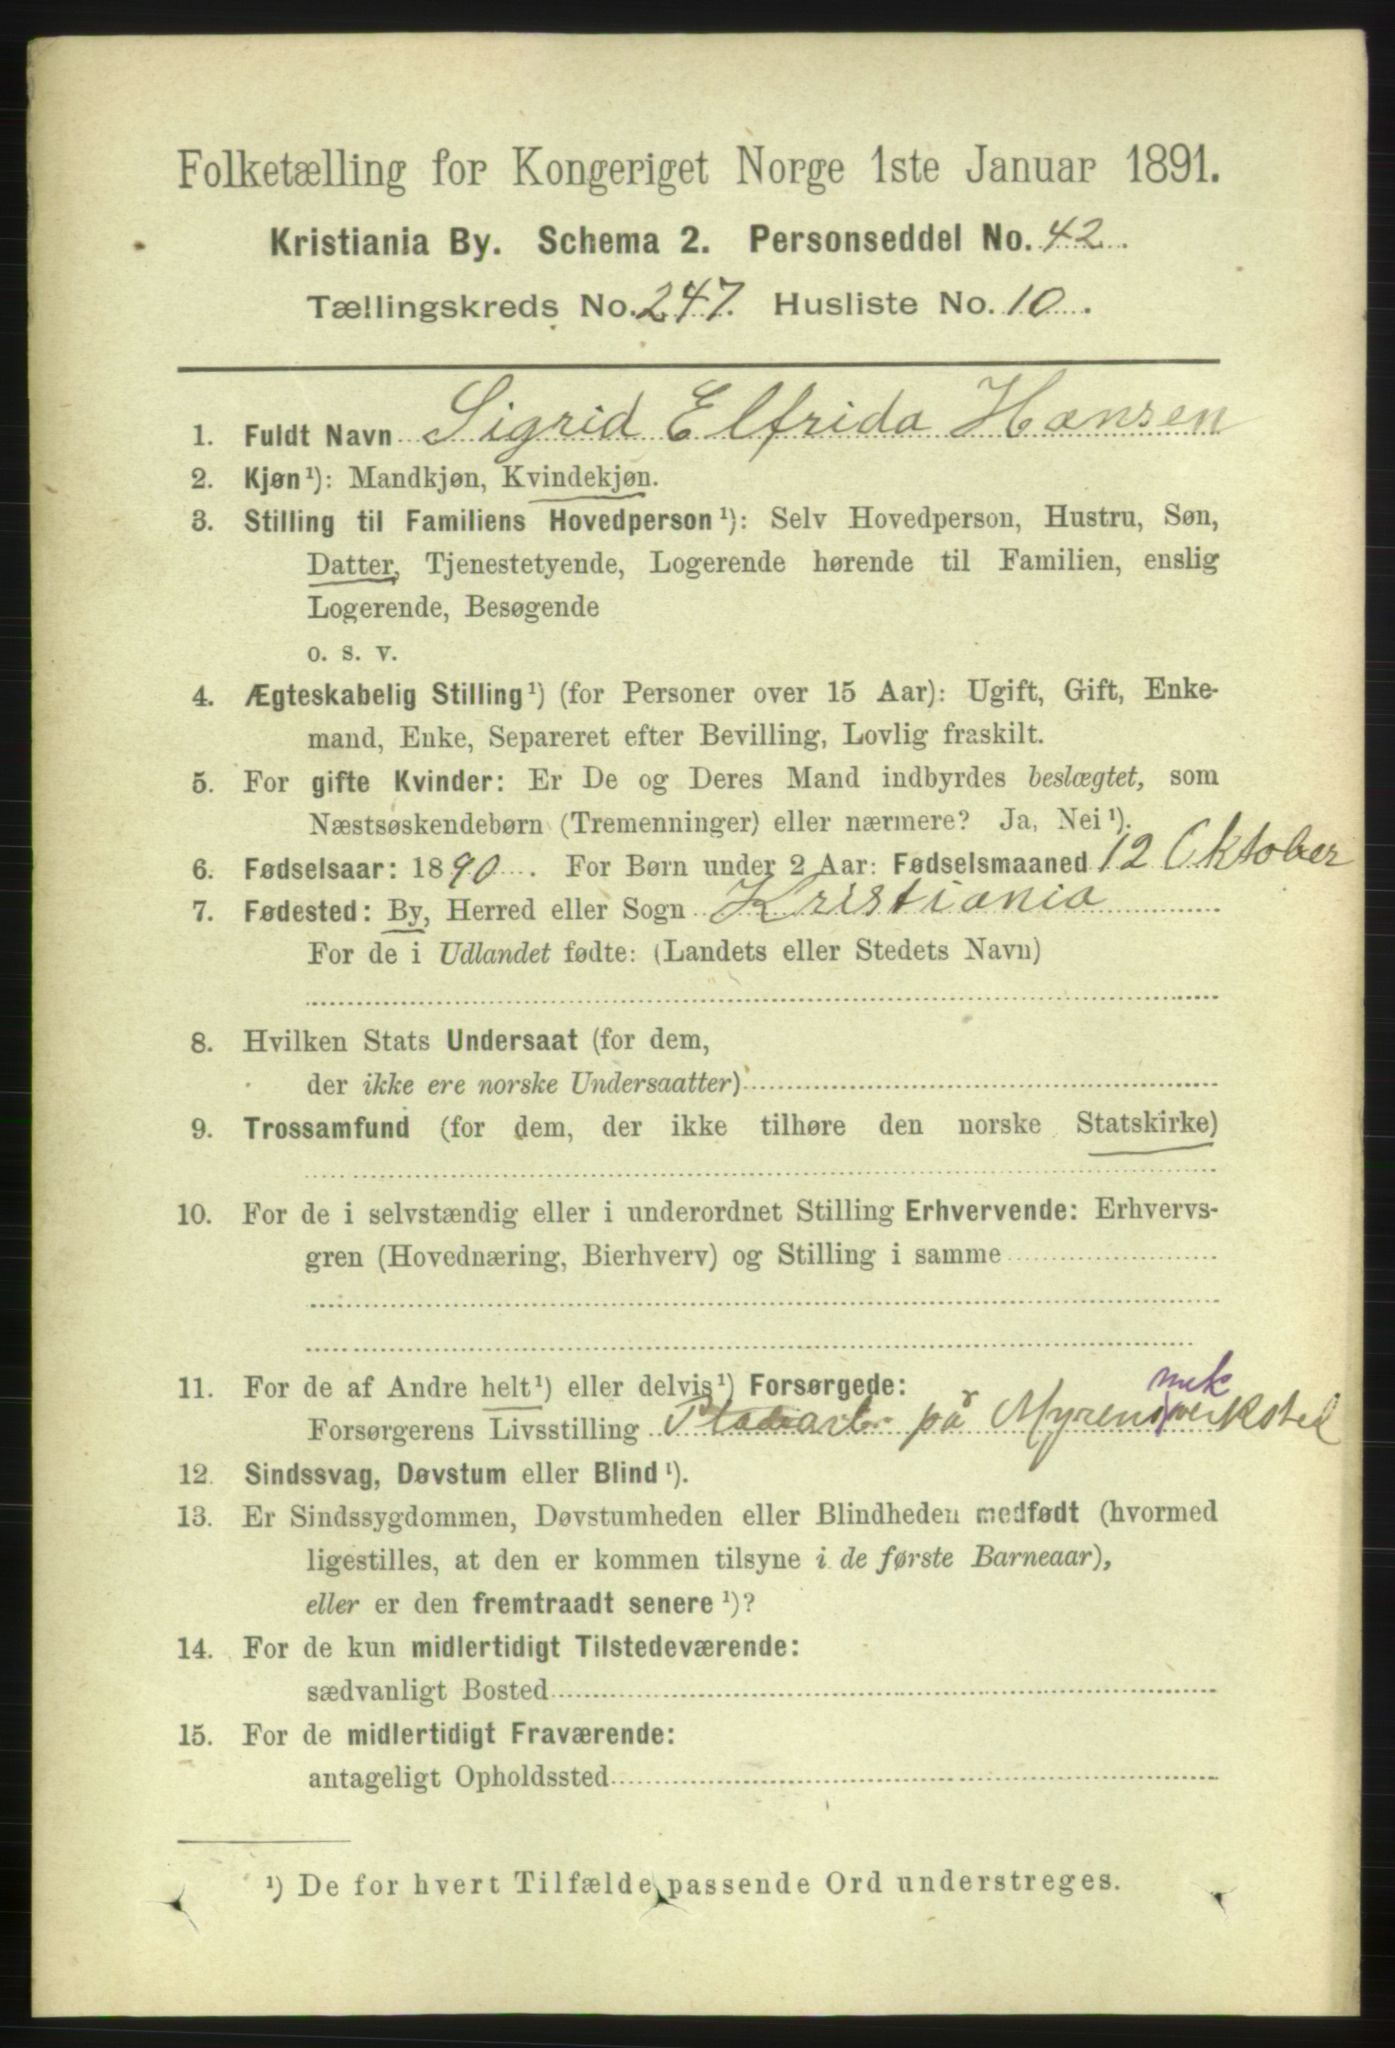 Folketælling for Kongeriget Norge 1ste Januar 1891.
Kristiania By. Schema 2. Personseddel No. 42.
Tællingskreds No. 247. Husliste No. 10.
1. Fuldt Navn Sigrid Elfrida Hansen
2. Kjøn¹): Mandkjøn, Kvindekjøn.
3. Stilling til Familiens Hovedperson¹): Selv Hovedperson, Hustru, Søn,
Datter, Tjenestetyende, Logerende hørende til Familien, enslig
Logerende, Besøgende
o. s. v.
4. Ægteskabelig Stilling¹) (for Personer over 15 Aar): Ugift, Gift, Enke-
mand, Enke, Separeret efter Bevilling, Lovlig fraskilt.
5. For gifte Kvinder: Er De og Deres Mand indbyrdes beslægtet, som
Næstsøskendebørn (Tremenninger) eller nærmere? Ja, Nei¹).
6. Fødselsaar: 1890. For Børn under 2 Aar: Fødselsmaaned 12 Oktober
7. Fødested: By, Herred eller Sogn Kristiania
For de i Udlandet fødte: (Landets eller Stedets Navn)
8. Hvilken Stats Undersaat (for dem,
der ikke ere norske Undersaatter)
9. Trossamfund (for dem, der ikke tilhøre den norske Statskirke)
10. For de i selvstændig eller i underordnet Stilling Erhvervende: Erhvervs-
gren (Hovednæring, Bierhverv) og Stilling i samme
11. For de af Andre helt¹) eller delvis¹) Forsørgede:
mek
Forsørgerens Livsstilling på Myrens verksted
12. Sindssvag, Døvstum eller Blind¹).
13. Er Sindssygdommen, Døvstumheden eller Blindheden medfødt (hvormed
ligestilles, at den er kommen tilsyne i de første Barneaar),
eller er den fremtraadt senere¹)?
14. For de kun midlertidigt Tilstedeværende:
sædvanligt Bosted
15. For de midlertidigt Fraværende:
antageligt Opholdssted
¹) De for hvert Tilfælde passende Ord understreges.